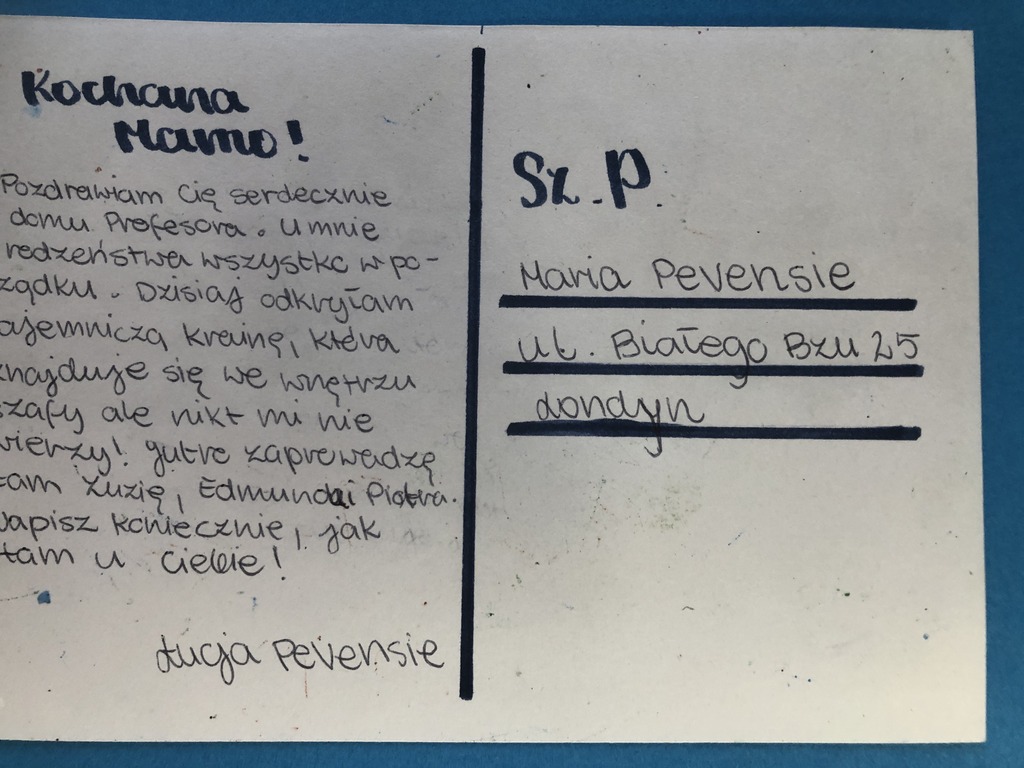 Kochana
Mamo!
Pozdrawiam Cię serdecznie
domu Profesora. U mnie
redzeństwa wszystko w po-
ządku. Dzisiaj odkryłam
ajemniczą krainę, która
znajduje się we wnętrzu
szafy ale nikt mi nie
wierzy! Jutro zaprowadzę
tam Zuzię, Edmunda i Piotra.
Napisz koniecznie, jak
tam u Ciebie!
Łucja Pevensie
Sz.P.
Maria Pevensie
ul. Białego Bzu 25
Londyn